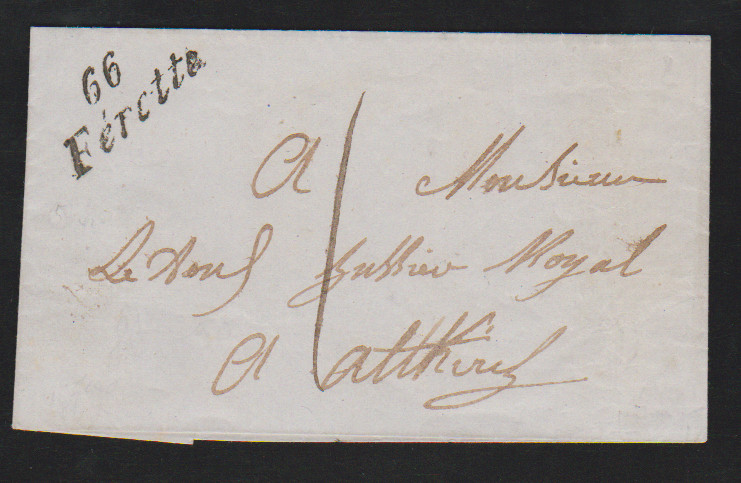 66
Férette
A Monsieur
hussier Royal
A altkirch